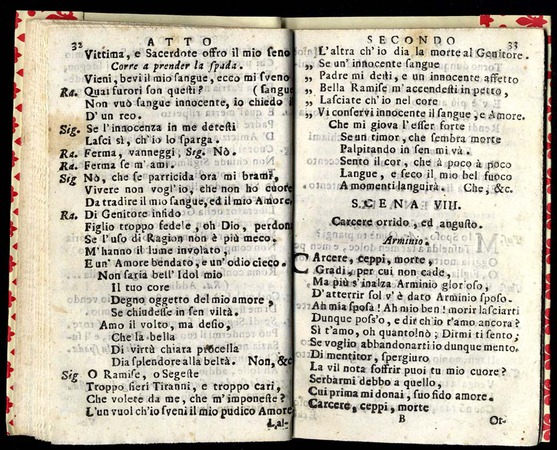 32 ATTO
Vittima, e Sacerdote offro il mio seno
Corre a prender la spada.
Vieni, bevi il mio sangue, ecco mi sveno
Ra. Quai furori son questi? (sangue
Non vuò sangue innocente, io chiedo il
D'un reo.
Sig. Se l'innocenza in me detesti
Lasci sì, ch'io lo sparga.
Ra. Ferma, vanneggi, Sig. Nò.
Ra. Ferma se m'ami.
Sig Nò, che se parricida ora mi brami,
Vivere non vogl'io, che non ho cuore
Da tradire il mio sangue, ed il mio Amore.
Ra. Di Genitore infido
Figlio troppo fedele, oh Dio, perdona
Se l'uso di Ragion non è più meco.
M'hanno il lume involato,
E un' Amore bendato, e un'odio cieco.
Non saria bell'Idol mio
Il tuo core
Degno oggetto del mio amore,
Se chiudesse in sen viltà.
Amo il volto, ma desio,
Che la bella
Di virtù chiara procella
Dia splendore alla beltà. Non, &c
Sig O Ramise, o Segeste
Troppo fieri Tiranni, e troppo cari,
Che volete da me, che m'imponeste?
L'un vuol ch'io sveni il mio pudico Amore
L'al-
SECONDO 33
L'altra ch'io dia la morte al Genitore.
„ Se un' innocente sangue
„ Padre mi desti, e un innocente affetto
„ Bella Ramise m'accendesti in petto,
„ Lasciate ch'io nel core
„ Vi conservi innocente il sangue, e Amore.
Che mi giova l'esser forte
Se un timor, che sembra morte
Palpitando in sen mi và.
Sento il cor, che à poco à poco
Langue, e seco il mio bel fuoco
A momenti languirà. Che, &c.
SCENA VIII.
Carcere orrido, ed angusto.
Arminio.
CArcere, ceppi, morte,
Gradi, per cui non cade,
Ma più s'inalza Arminio glor'oso,
D'atterrir sol v'è dato Arminio sposo.
Ah mia sposa! Ah mio ben! morir lasciarti
Dunque poss'o, e dir ch'io t'amo ancora?
Sì t'amo, oh quanto! nò; Dirmi ti sento;
Se voglio abbandonarti io dunque mento.
Di mentitor, spergiuro
La vil nota soffrir puoi tu mio cuore?
Serbarmi debbo a quello,
Cui prima mi donai, suo fido amore.
Carcere, ceppi, morte
B Or-